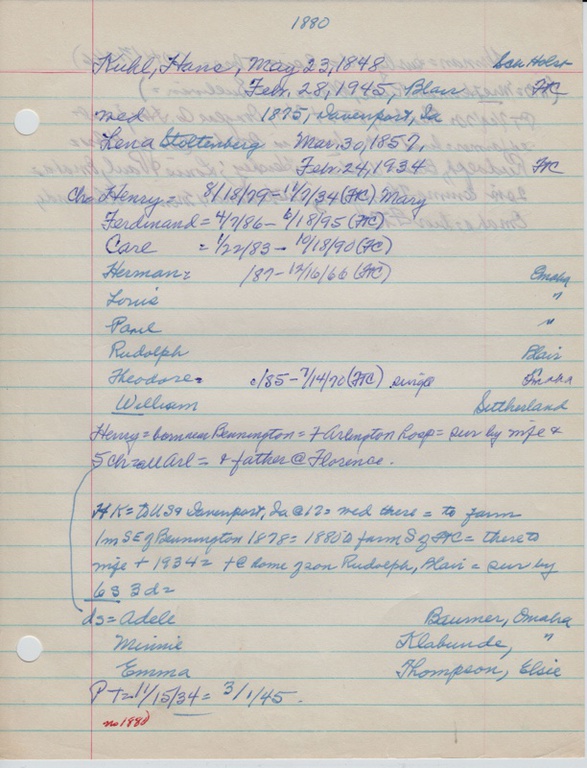 1880
Kuhl, Hans, May 23, 1848 Sch Holst
Feb. 28, 1945, Blair FC
wed 1875, Davenport, Ia
Lena Stoltenberg Mar. 30, 1857,
Feb. 24, 1934 FC
Ch= Henry= 8/18/79 = 11/7/34 (FC) Mary
Ferdinand = 4/7/86 - 6/18/95 (FC)
Carl = 1/22/83 - 10/18/90 (FC)
Herman = /87 - 12/16/66 (FC) Omaha
Louis "
Paul "
Rudolph Blair
Theodore = c/85 - 7/14/70 (FC) single Omaha
William Sutherland
Henry = born near Bennington = + Arlington hosp = sur by wife &
5 ch = all Arl = & father @ Florence.
HK = to USA Davenport, Ia @ 17 = wed there = to farm
1m SE of Bennington 1878 = 1880 to farm S of FC = there to
wife + 1934 = + @ home of son Rudolph, Blair = sur by
6 s 3 d =
ds = Adele Baumer, Omaha
Minnie Klabunde, "
Emma Thompson, Elsie
PT = 11/15/34 = 3/1/45.
no 1880